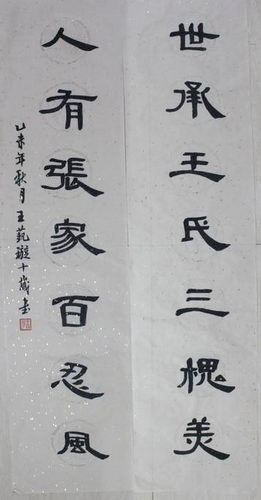 世承王氏三槐美
人有張家百忍風
乙未年秋月王蓺璇十歲書